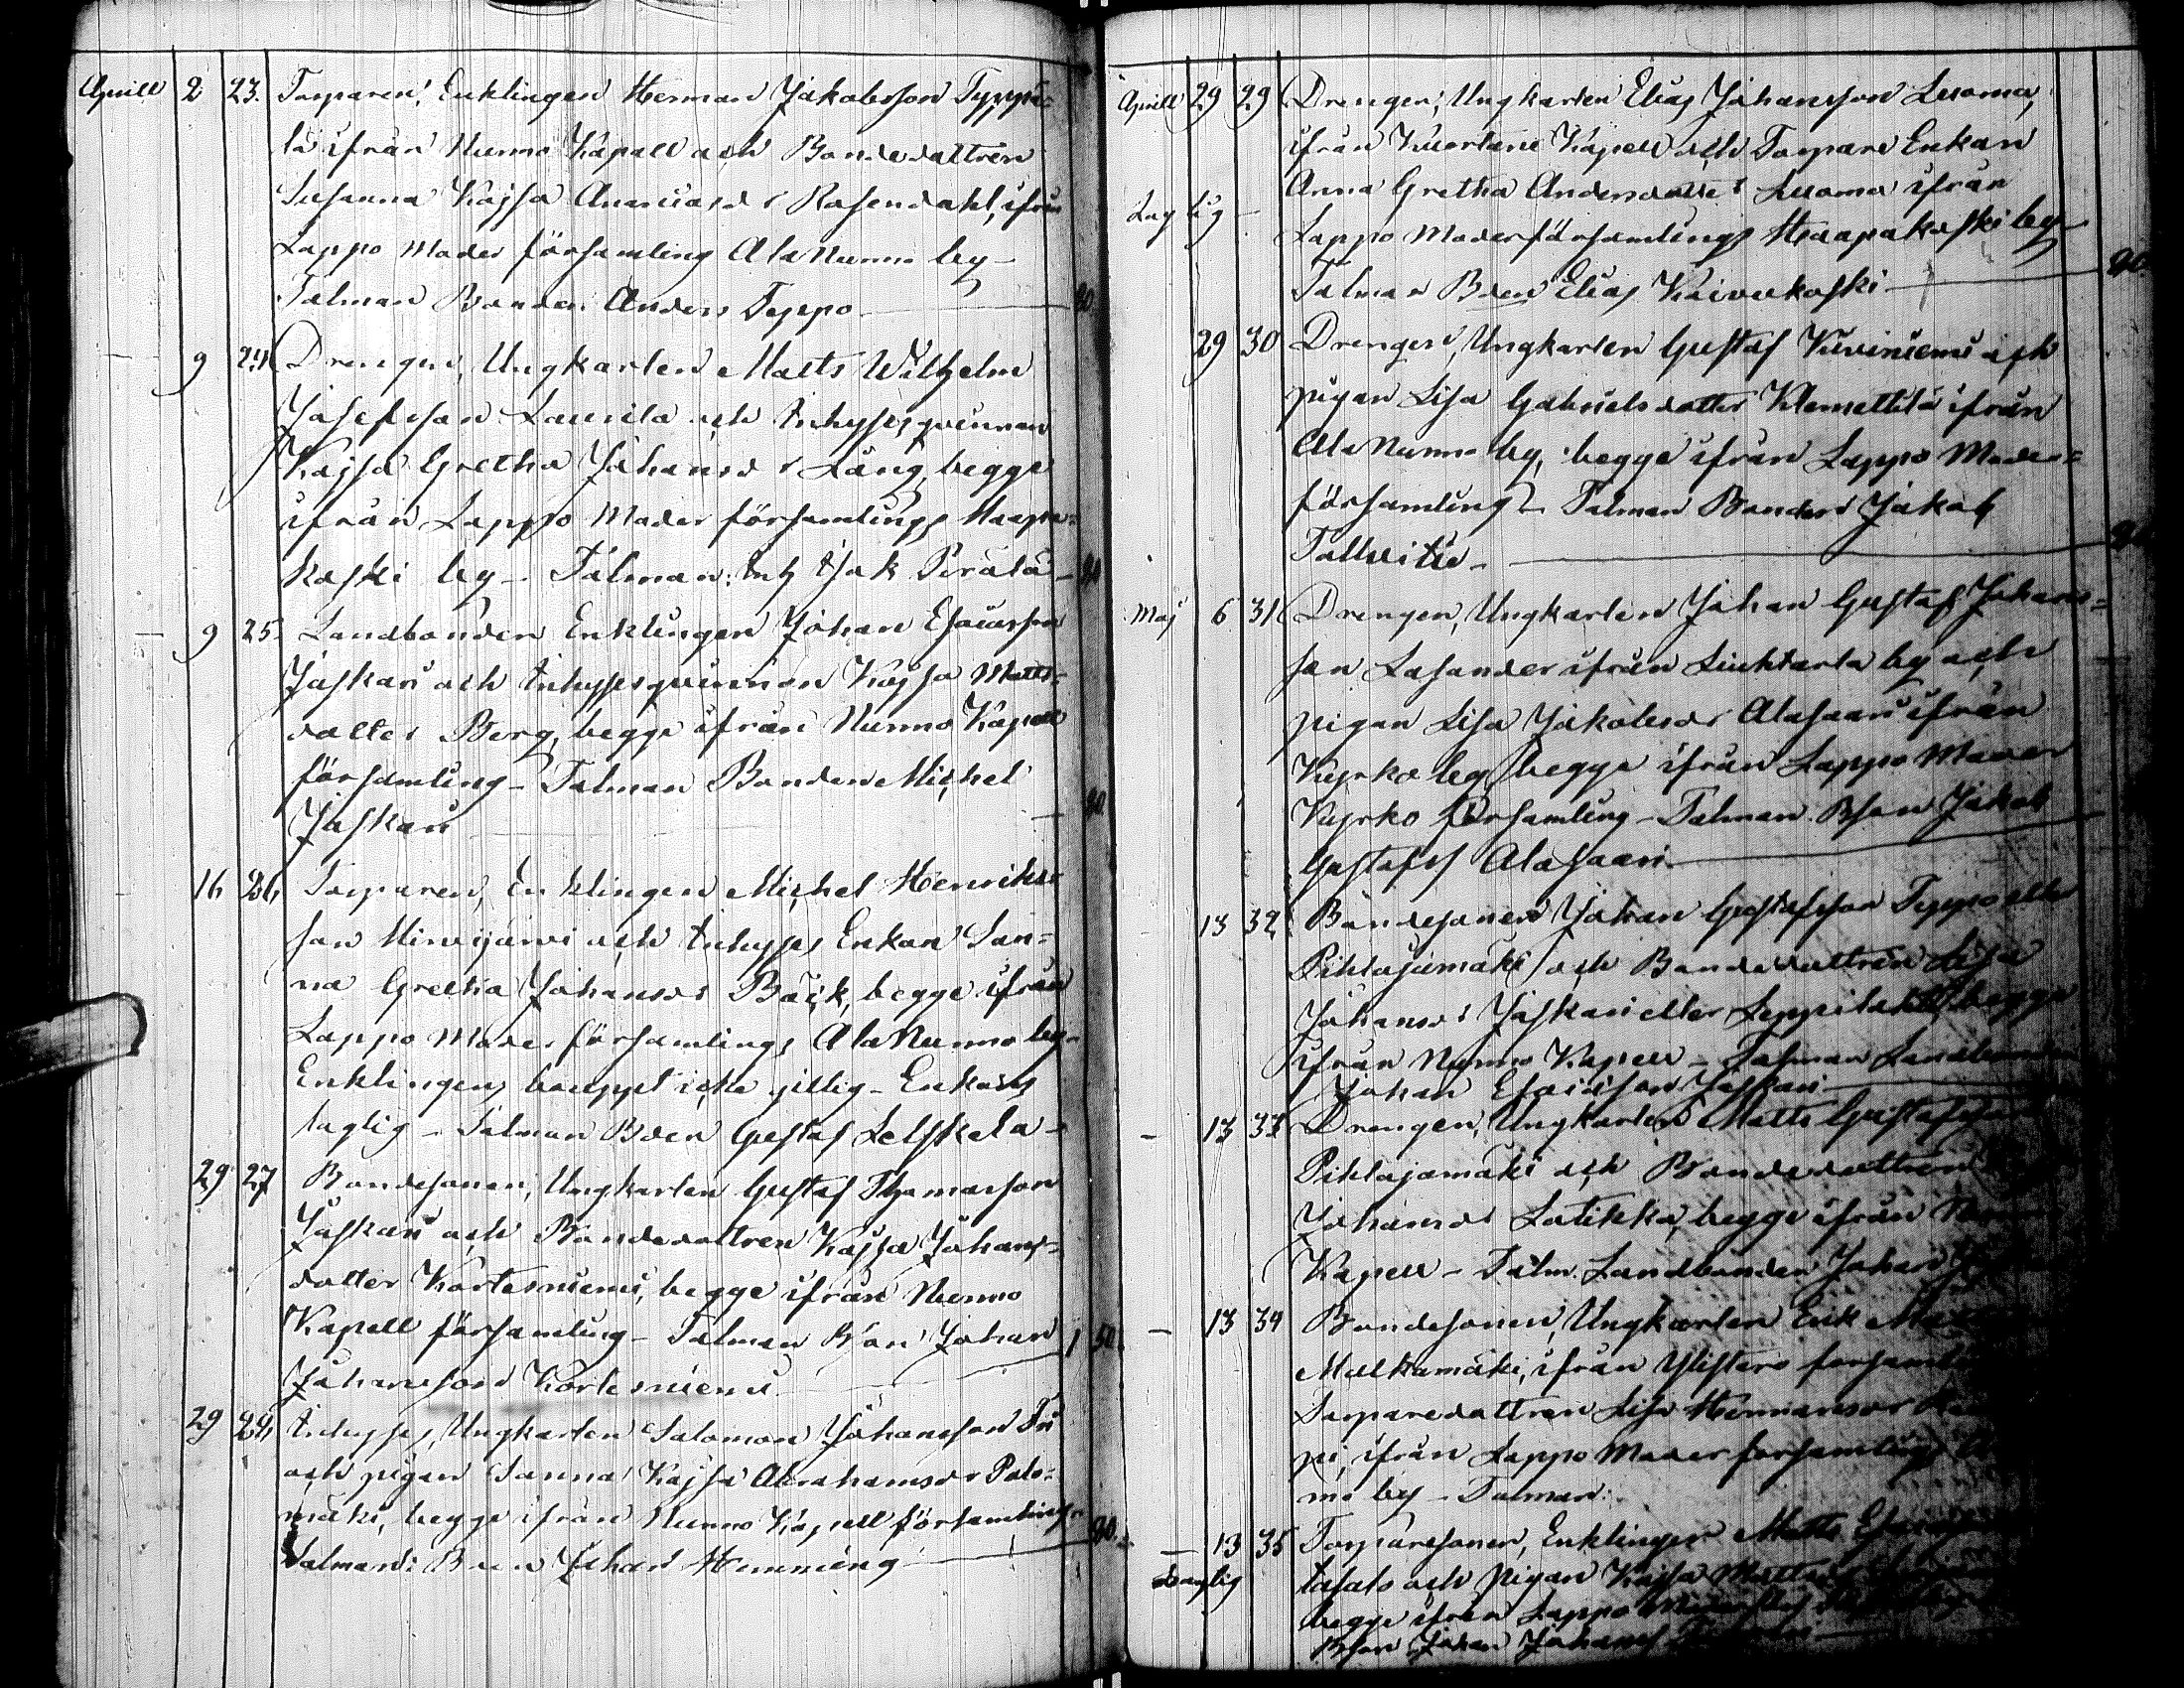 Aprill 2 23. Torparen, Enklingen Herman Jakobsson Typpä=
lä ifrån Nurmo Kapell och Bondedottren
Susanna Kajsa Ananiasdr Rosendahl, ifrån
Lappo Moder församling Ala Nurmo by –
Talman Bonden Anders Teppo 20
9 24 Drengen, Ungkarlen Matts Wilhelm
Josefsson Laurila och Inhysesqvinnan
Kajsa Gretha Johansdr Lång, begge
ifrån Lappo Moder församlings Haapa=
koski by – Talman: Inh Isak Perälä –
9 25. Landbonden Enklingen Johan Esaiasson
Jåskari och Inhysesqvinnan Kajsa Matts=
dotter Berg, begge ifrån Nurmo Kapell
församling – Talman Bonden Michel
Jåskari 20
16 26 Torparen, Enklingen Michel Henriks
son Hirvijärvi och Inhyses Enkan San=
na Gretha Johansdr Bäck, begge ifrån
Lappo Moder församlings Ala Nurmo by –
Enklingens bouppt icke giltig – Enkans
laglig – Talman Bden Gustaf
29 27 Bondesonen, Ungkarlen Gustaf Thomasson
Jåskari och Bondedottren Kajsa Johans=
dotter Kortesniemi, begge ifrån Nurmo
Kapell församling – Talman Bson Johan
Johansson Kortesniemi 1 50.
29 28 Inhyses, Ungkarlen Salomon Johansson
och pigan Sanna Kajsa Abrahamsdr Palo=
mäki, begge ifrån Nurmo Kapell församling –
Talman: Bden Johan Hemming 20.
Aprill 29 29 Drengen, Ungkarlen Elias Johansson Luoma,
ifrån Kuortane Kapell och Torpare Enkan
Laglig – Anna Gretha Andersdotter Luoma ifrån
Lappo Moderförsamlings Haapakoski by –
Talman Bden Elias Koivukoski 20.
29 30 Drengen, Ungkarlen Gustaf Kiviniemi och
pigan Lisa Gabrielsdotter Klemettilä ifrån
Ala Nurmo by, begge ifrån Lappo Moder=
församling – Talman Bonden Jakob
Tallvitie –
Maj 6 31 Drengen, Ungkarlen Johan Gustaf Johans=
son Lasander ifrån Liuhtarla by och
pigan Lisa Jakobsdr Alasaari ifrån
Kyrko by, begge ifrån Lappo Moder
Kyrko församling – Talman Bson Jakob
Gustafss Alasaari
13 32 Bondesonen Johan Gustafsson Teppo eller
Pihlajamäki och Bondedottren Lisa
Johansdr Jåskari eller begge
ifrån Nurmo Kapell – Talman Landbonden
Johan Esaiasson Jåskari
– 13 33 Drengen, Ungkarlen Matts Gustafsson
Pihlajamäki och Bondedottren
Johansdr Latikka, begge ifrån
Kapell – Talm. Landbonden Johan
– 13 34 Bondesonen, Ungkarlen Erik
ifrån Ylistaro
Torparedottren Lisa Hermansdr
ifrån Lappo Moder församlings
mo by – Talman:
– 13 35 Torparesonen, Enklingen Matts
Laglig och pigan Kajsa
begge ifrån Lappo
Bson Johan Johanss